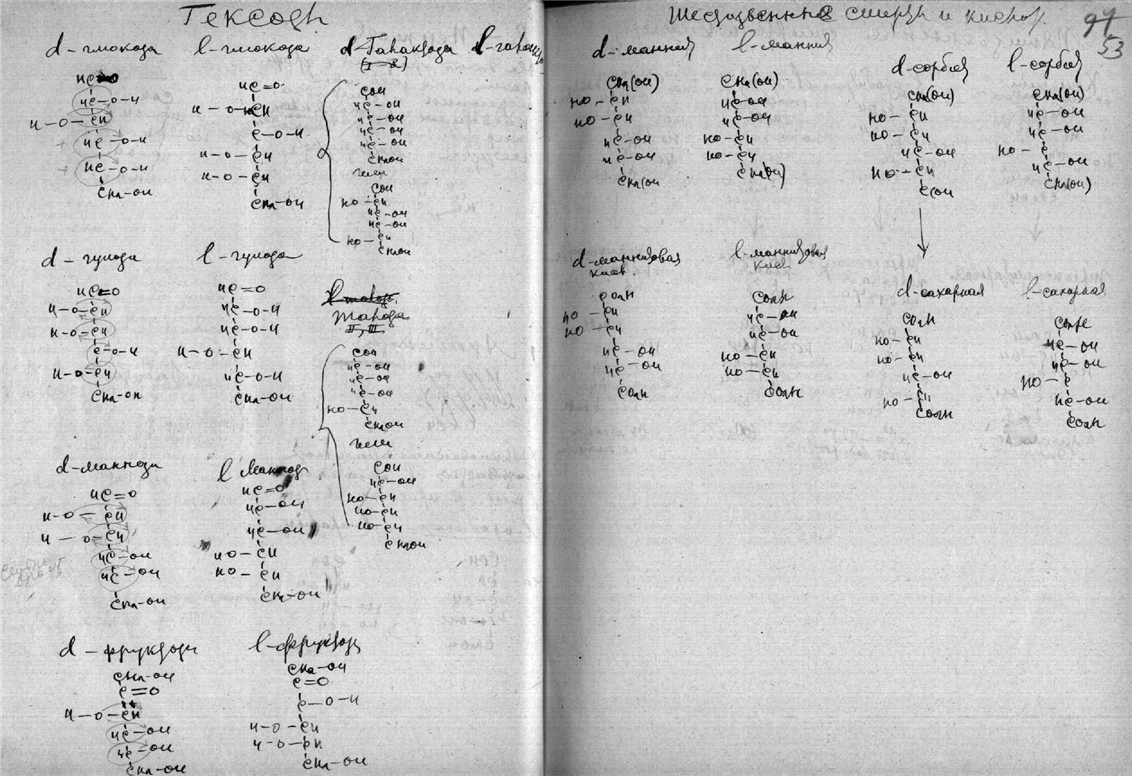 Гексозы
d-глюкоза l-глюкоза d-Галактоза l-галакт.
HC=O
HC-O-H
H-O-CH
HC-O-H
HC-O-H
CH₂-OH
HC=O
H-O-CH
C-O-H
H-O-CH
H-O-CH
CH₂-OH
COH
HC-OH
HC-OH
HC-OH
HC-OH
CH₂OH
или
COH
HO-CH
HC-OH
HC-OH
HO-CH
CH₂OH
d-гулоза l-гулоза
HC=O
H-O-CH
H-O-CH
C-O-H
H-O-CH
CH₂-OH
HC=O
HC-O-H
HC-O-H
H-O-CH
HC-O-H
CH₂-OH
Талоза
I, II
COH
HC-OH
HC-OH
HC-OH
HO-CH
CH₂OH
или
COH
HC-OH
HO-CH
HO-CH
HO-CH
CH₂OH
d-манноза l манноз
HC=O
H-O-CH
H-O-CH
HC-OH
HC-OH
CH₂-OH
HC=O
HC-OH
HC-OH
HO-CH
HO-CH
CH₂-OH
d-фруктоза l-фруктоз
CH₂-OH
C=O
H-O-CH
HC-OH
HC-OH
CH₂-OH
CH₂-OH
C=O
C-O-H
H-O-CH
H-O-CH
CH₂-OH
Шестизвенные спирты и кислот.
53
d-маннит l-маннит d-сорбит l-сорбит
CH₂(OH)
HO-CH
HO-CH
HC-OH
HC-OH
CH₂(OH
CH₂(OH)
HC-OH
HC-OH
HO-CH
HO-CH
CH₂(OH)
CH₂(OH)
HO-CH
HO-CH
HC-OH
HO-CH
COH
CH₂(OH)
HC-OH
HC-OH
HO-CH
HC-OH
CH₂(OH)
d-маннитовая l-маннитовая
кисл. кисл
CO₂H
HO-CH
HO-CH
HC-OH
HC-OH
CO₂H
CO₂H
HC-OH
HC-OH
HO-CH
HO-CH
CO₂H
d-сахарная l-сахарная
CO₂H
HO-CH
HO-CH
HC-OH
HO-CH
CO₂H
CO₂H
HC-OH
HC-OH
HO-C
HC-OH
CO₂H